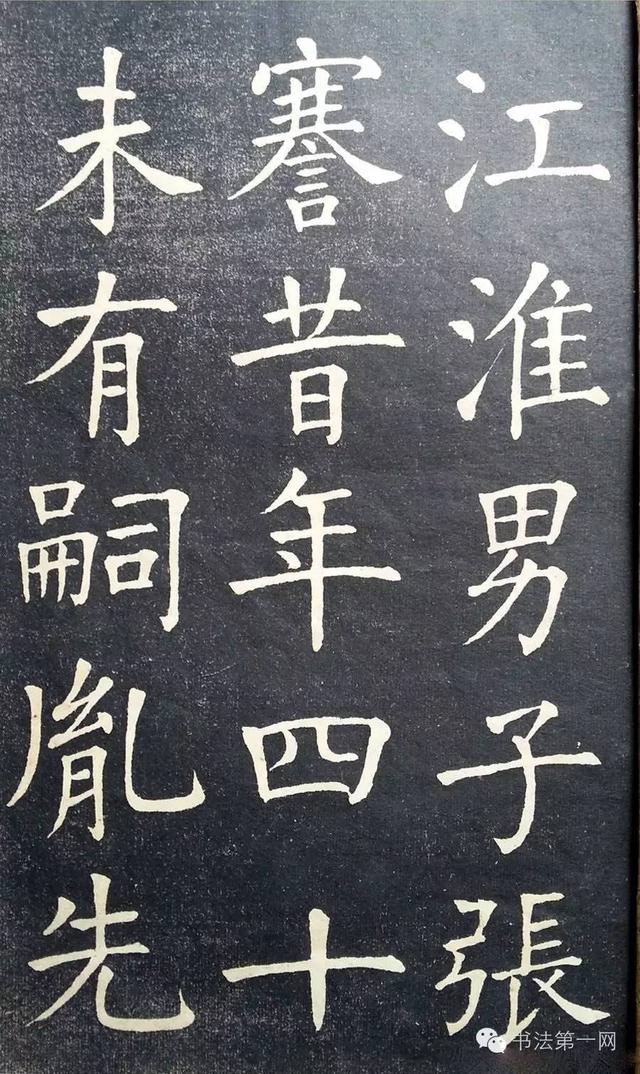 江淮男子張
謇昔年四十
未有嗣胤先
书法第一网